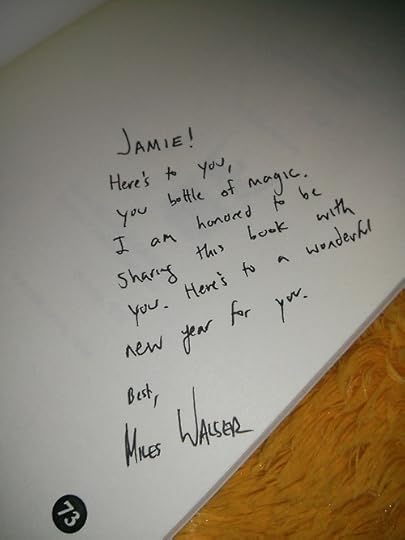 JAMIE!
Here's to you,
you bottle of magic.
I am honored to be
sharing this book with
you. Here's to a wonderful
new year for you.
Best,
MILES WALSER
73